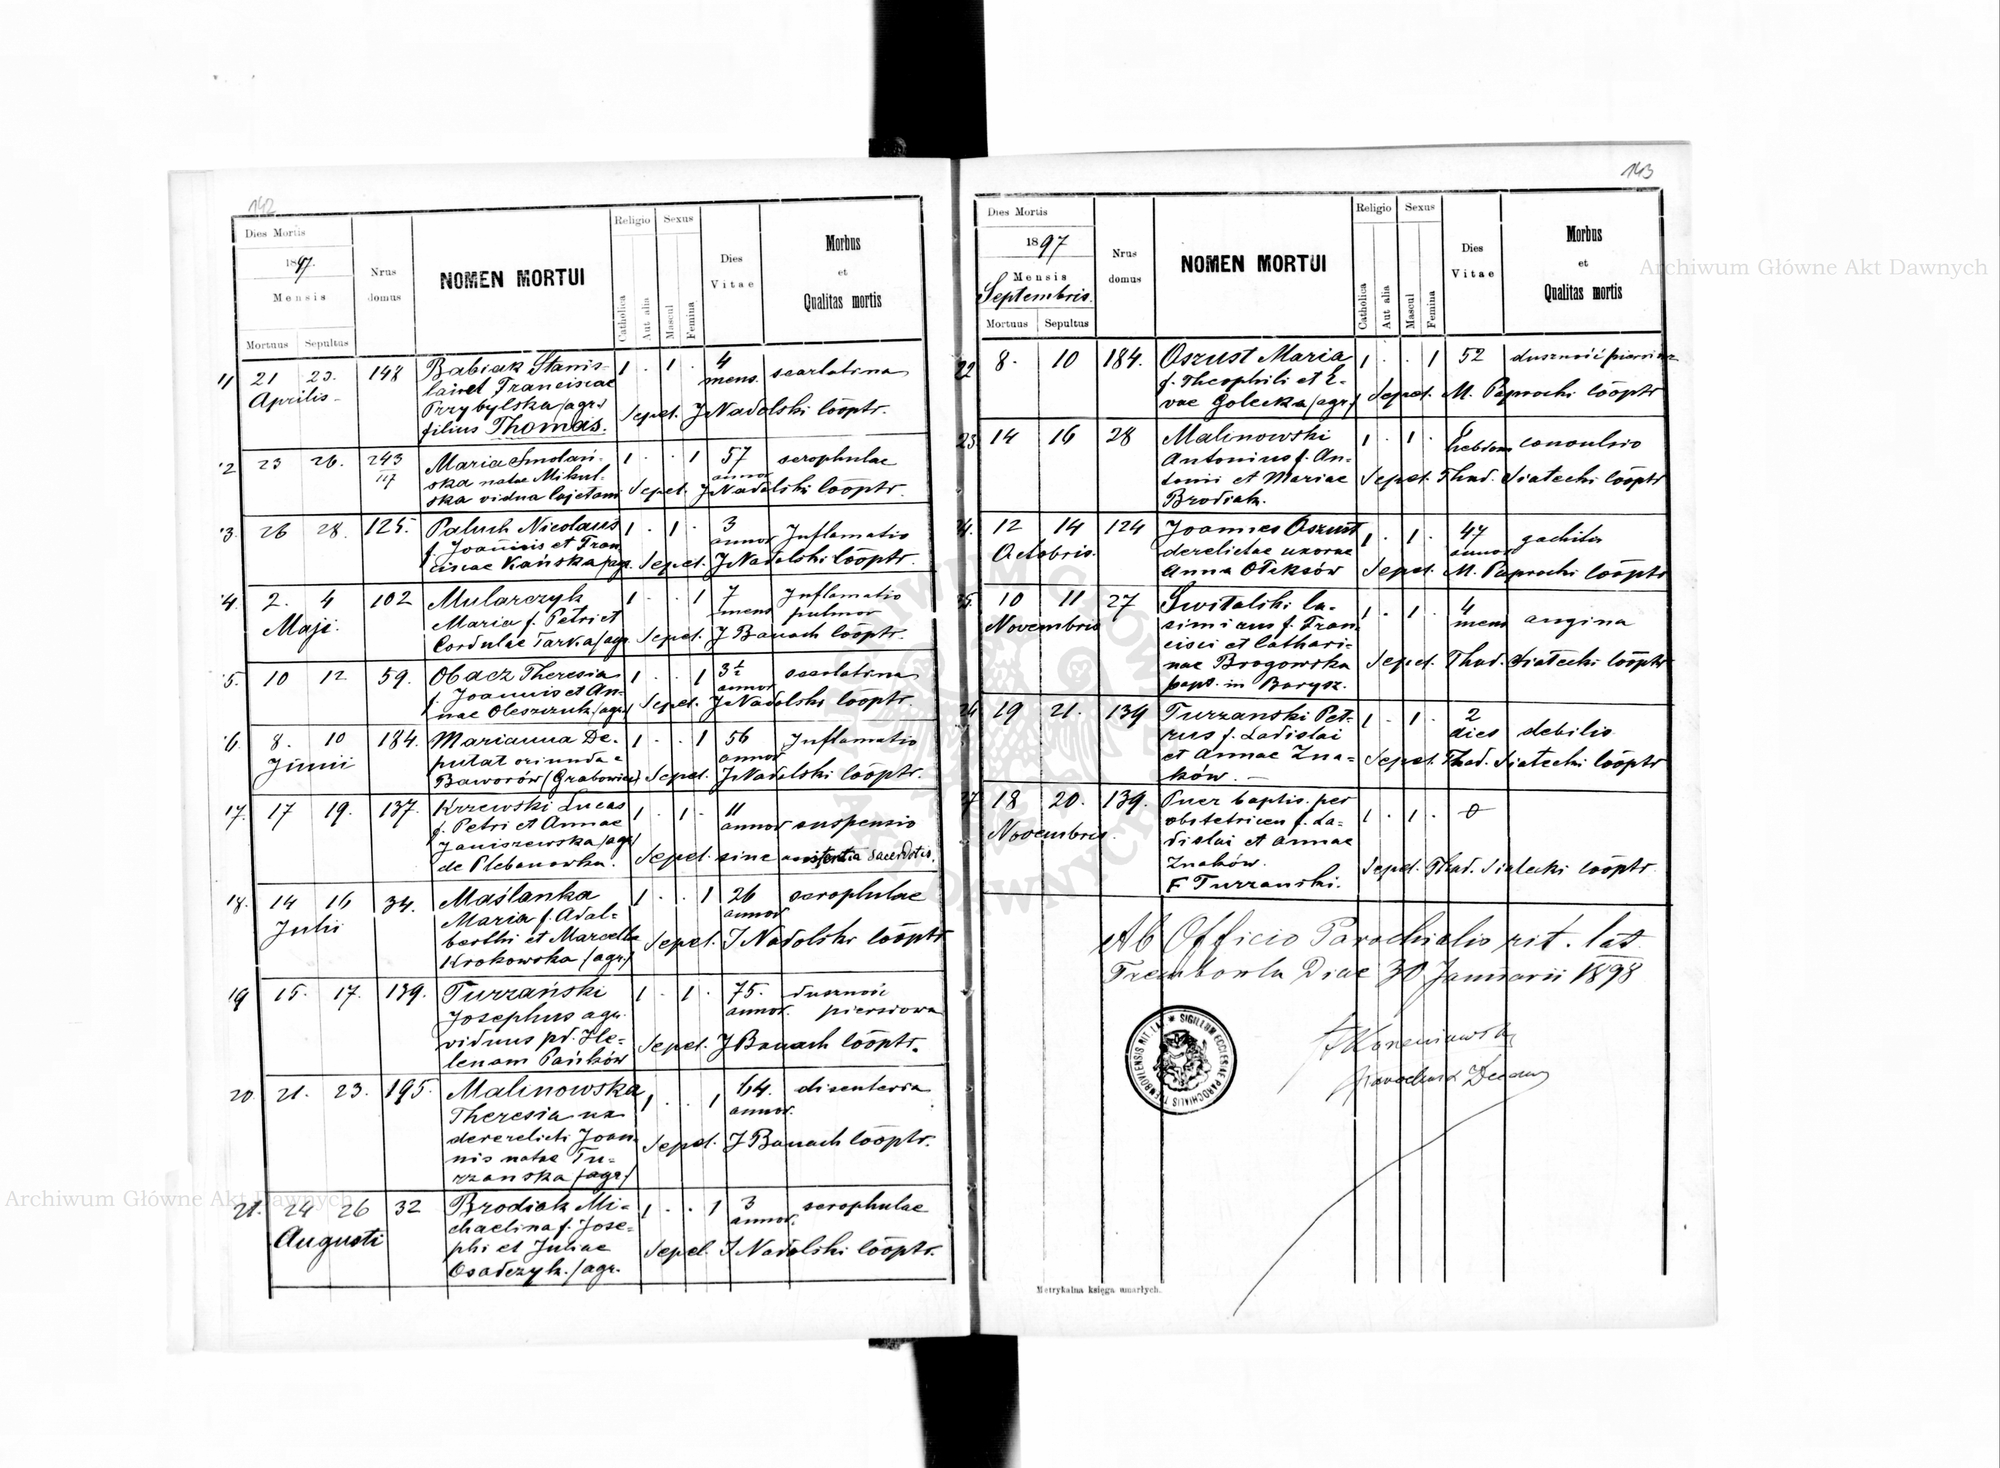 142
Dies Mortis
1897.
Mensis
Mortuus Sepultus
Nrus domus
NOMEN MORTUI
Religio
Catholica
Aut alia
Sexus
Mascul
Femina
Dies Vitae
Morbus
et
Qualitas mortis
11 21 23. 148 Babiak Stanis- 1 . 1 . 4 scarlatina
Aprilis lai et Franciscae mens.
Przybylska /agr./ Sepel. J Nadolski coōptr.
filius Thomas.
12 23 26. 243 Maria Smolań- 1 . . 1 57 scrophulae
III ska natae Mikul- annor
ska vidua Cajetani Sepel. J Nadolski coōptr.
13. 26 28. 125. Paluch Nicolaus 1 . 1 . 3 Inflamatio
f. Joannis et Fran annor
ciscae Kańska /agr. Sepel. J Nadolski coōptr.
14. 2. 4 102 Mularczyk 1 . . 1 7 Inflamatio
Maji. Maria f. Petri et mens pulmor
Cordulae Tarka /agr Sepel. J Banach coōptr.
15. 10 12 59. Obacz Theresia 1 . . 1 3½ scarlatina
f. Joannis et An- annor
nae Oleszczuk /agr./ Sepel. J Nadolski coōptr.
16. 8. 10 184. Marianna De- 1 . . 1 56 Inflamatio
Junii putat oriunda e annor
Baworów (Grabowiec) Sepel. J Nadolski coōptr.
17. 17 19. 137. Krzewski Lucas 1 . 1 . 11 suspensio
f. Petri et Annae annor
Janiszewska /agr/
de Plebanowka. Sepel. sine assistentia sacerdotis.
18. 14 16 34. Maślanka 1 . . 1 26 scrophulae
Julii Maria f. Adal- annor
berthi et Marcella Sepel. J Nadolski coōptr
Krokowska /agr./
19 15. 17. 139. Turzański 1 . 1 . 75. duszność
Josephus agr. annor. piersiowa
viduus pd. He- Sepel. J Banach coōptr.
lenam Pańków
20. 21. 23. 195. Malinowska 1 . . 1 64. disenteria
Theresia ux annor.
derelicti Joan Sepel. J Banach coōptr.
nis natae Tu-
rzanska /agr/
21. 24 26 32 Brodiak Mi- 1 . . 1 3 scrophulae
Augusti chaelina f. Jose- annor.
phi et Juliae Sepel. J Nadolski coōptr.
Osadczyk. /agr.
143
Dies Mortis
1897
Mensis
Septembris.
Mortuus Sepultus
Nrus domus
NOMEN MORTUI
Religio
Catholica
Aut alia
Sexus
Mascul
Femina
Dies Vitae
Morbus
et
Qualitas mortis
22 8. 10 184. Oszust Maria 1 . . 1 52 duszność
f. Theophili et E-
vae Golecka /agr/ Sepel. M. Paprocki coōptr
23. 14 16 28 Malinowski 1 . 1 . hebdom convulsio
Antonius f. An-
tonii et Mariae Sepel. Thad. Siatecki coōptr
Brodiak.
24. 12 14 124 Joannes Oszust 1 . 1 . 47
Octobris. derelictae uxorae annor
Anna Ołeksów Sepel. M. Paprocki coōptr
25. 10 11 27 Switalski Ca- 1 . 1 . 4 angina
Novembris simirus f. Fran mens
cisci et Cathari-
nae Brogowska Sepel. Thad. Siatecki coōptr
bapt. in Barysz.
26 19 21. 139 Turzanski Pet- 1 . 1 . 2 debilis
rus f. Ladislai dies
et Annae Zna- Sepel. Thad. Siatecki coōptr
ków.
27 18 20. 139. Puer baptis. per 1 . 1 . 0
Novembris. obstetricem f. La-
dislai et Annae
Znaków. Sepel. Thad. Siatecki coōptr.
F Turzanski.
Ab Officio Parochialis rit. lat.
Trembowla Diae 30 Januarii 1898
SIGILLUM ECCLESIAE PAROCHIALIS TREMBOVLENSIS RIT. LAT.
Metrykalna księga umarłych.
Archiwum Główne Akt Dawnych
Archiwum Główne Akt Dawnych
ARCHIWUM GŁÓWNE AKT DAWNYCH